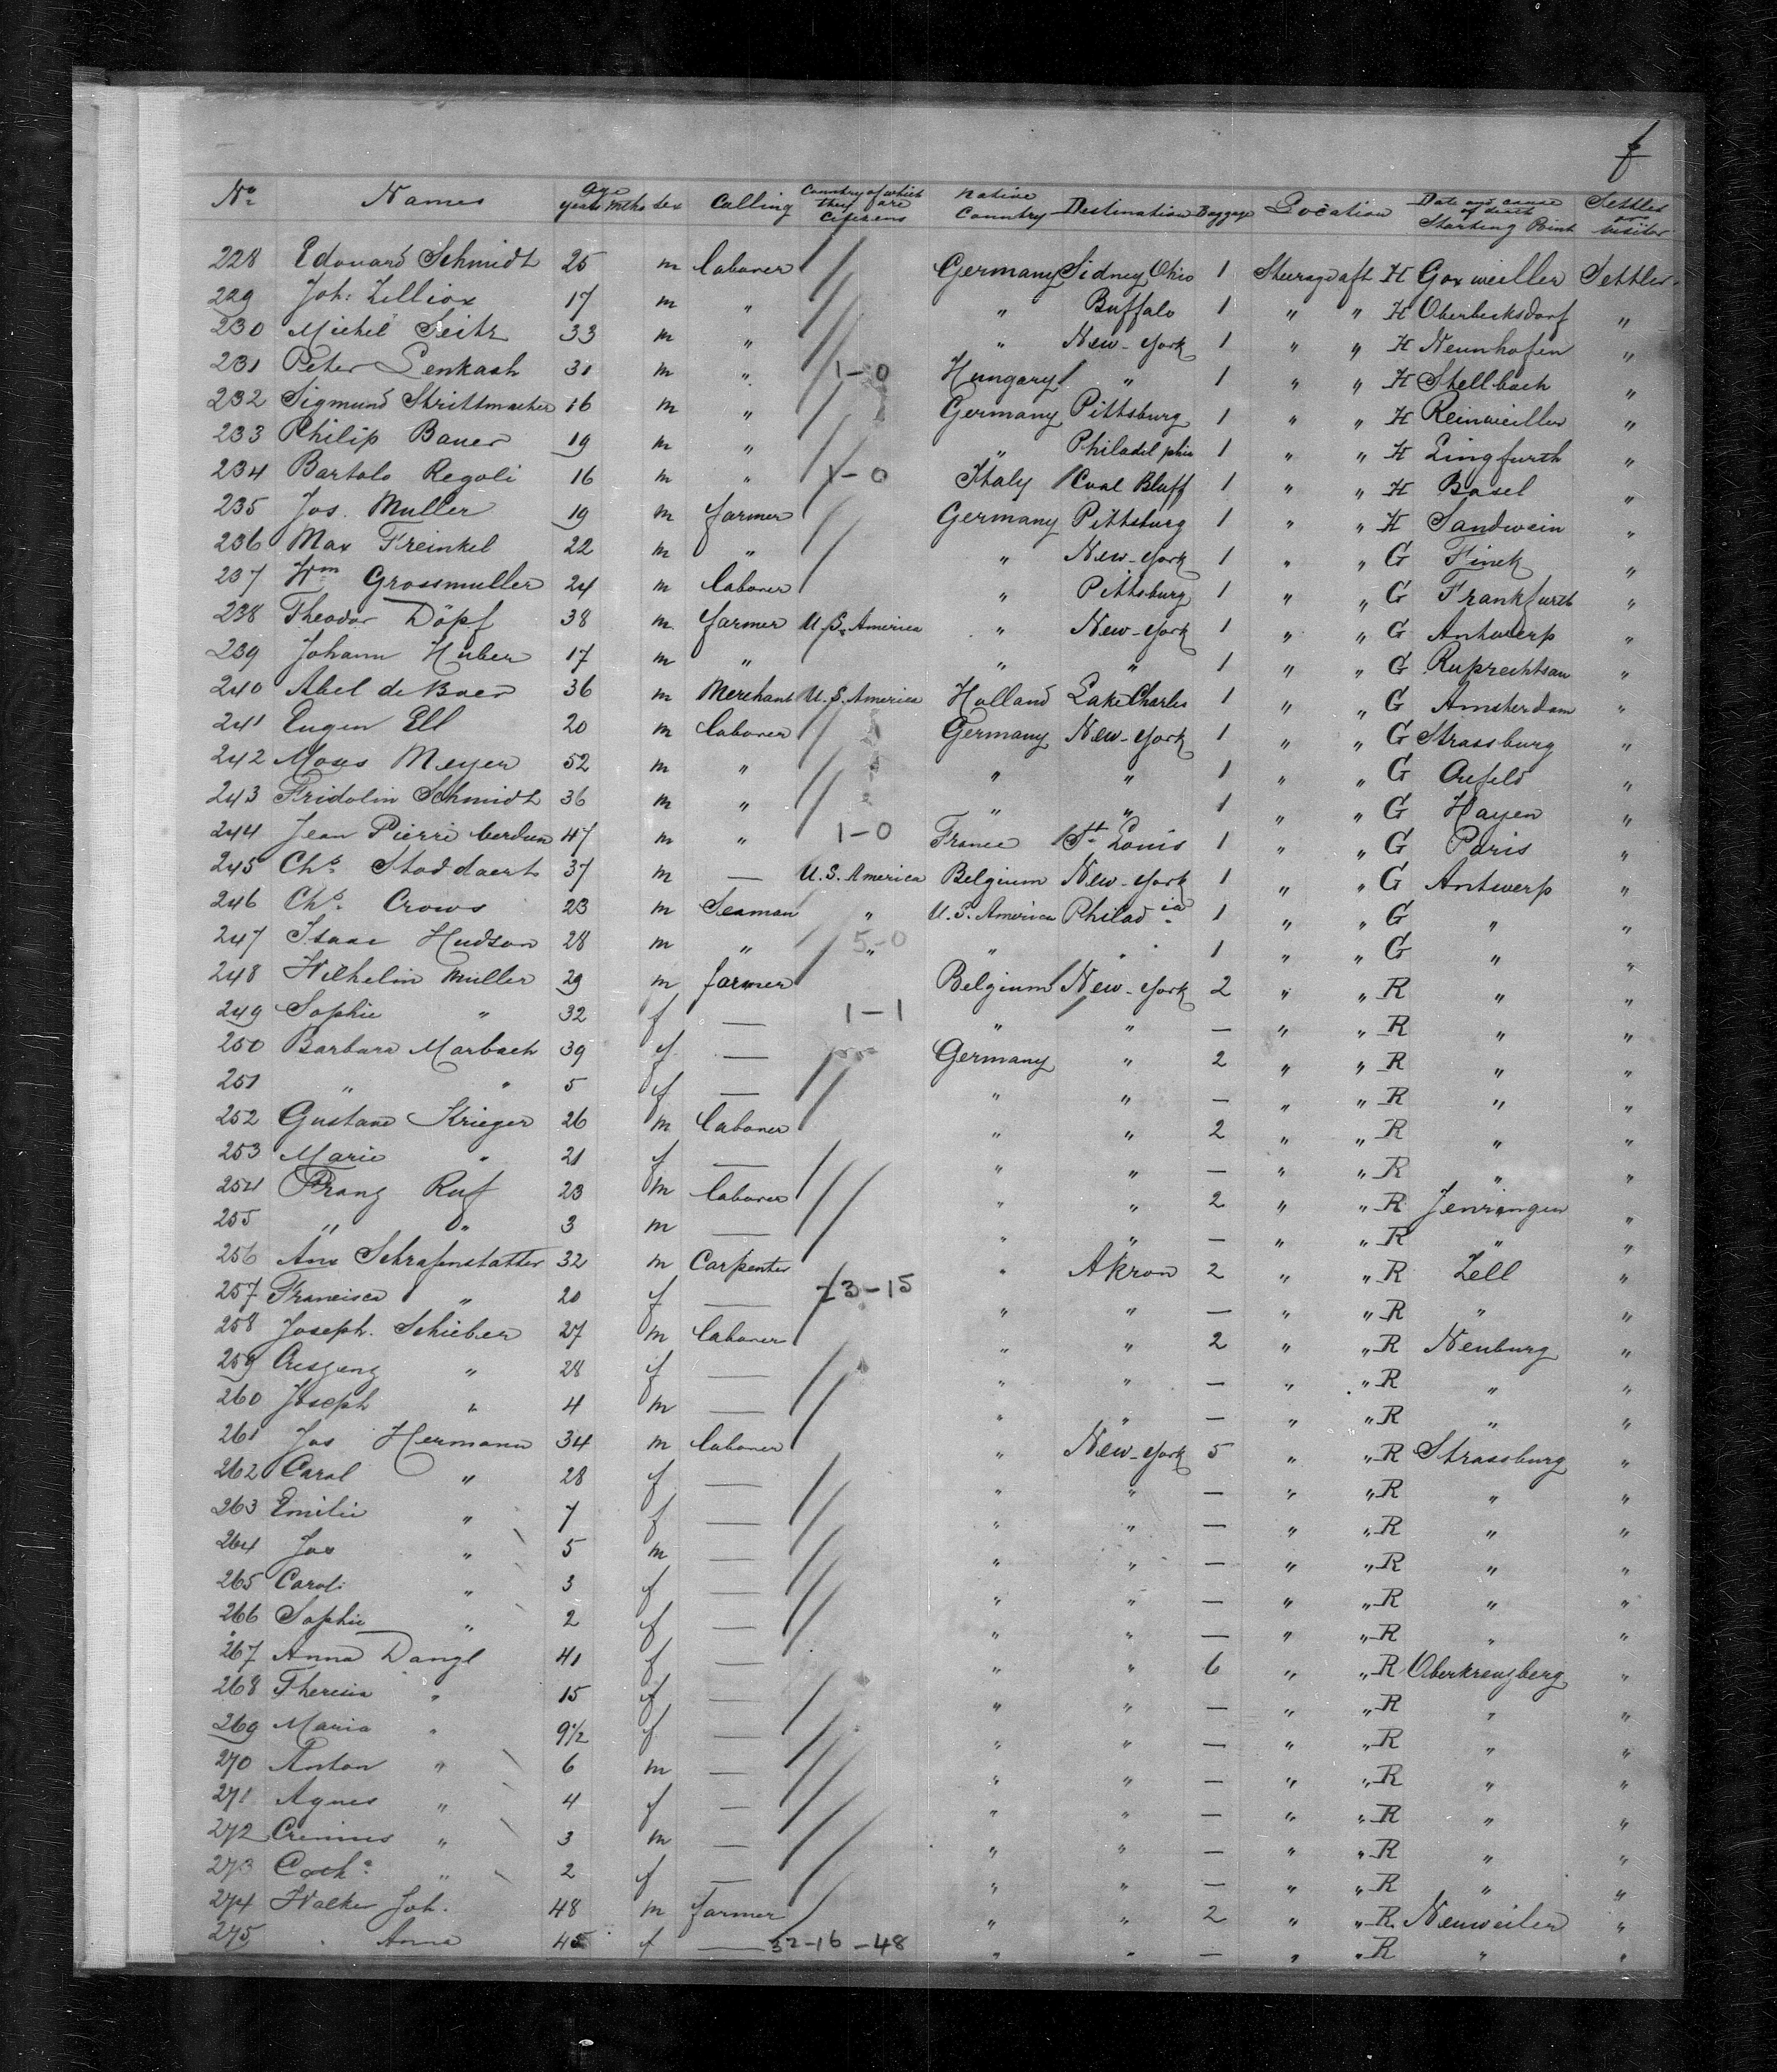 f
No Names Age years Mths Sex Calling Country of which they are Citizens Native Country Destination Baggage Location Date and cause of death Starting Point Settler or Visitor
228 Edouard Schmidt 25 m laborer Germany Sidney Ohio 1 Steerage aft H Goxweiller Settler
229 Joh: Zelliox 17 m " " Buffalo 1 " " H Oberbecksdorf "
230 Michel Seitz 33 m " " New-York 1 " " H Neunhofen "
231 Peter Lenkash 31 m " 1-0 Hungary " 1 " " H Stellbach "
232 Sigmund Strittmacher 16 m " Germany Pittsburg 1 " " H Reinweiller "
233 Philip Bauer 19 m " " Philadelphia 1 " " H Lingfurth "
234 Bartolo Regoli 16 m " 1-0 Italy Coal Bluff 1 " " H Basel "
235 Jos. Muller 19 m farmer Germany Pittsburg 1 " " H Sandwein "
236 Max Freinkel 22 m " " New-York 1 " " G Finck "
237 Wm Grossmuller 24 m laborer " Pittsburg 1 " " G Frankfurth "
238 Theodor Döpf 38 m farmer U.S. America " New-York 1 " " G Antwerp "
239 Johann Huber 17 m " " " 1 " " G Ruprechtsau "
240 Abel de Boer 36 m Merchant U.S. America Holland Lake Charles 1 " " G Amsterdam "
241 Eugen Ell 20 m laborer Germany New-York 1 " " G Strassburg "
242 Moses Meyer 52 m " " " 1 " " G Crefeld "
243 Fridolin Schmidt 36 m " " " 1 " " G Hayen "
244 Jean Pierre 47 m " 1-0 France St Louis 1 " " G Paris "
245 Chs Stoddaert 37 m — U.S. America Belgium New-York 1 " " G Antwerp "
246 Chs Crows 23 m Seaman " U.S. America Philadia 1 " " G " "
247 Isaac Hudson 28 m " " 5-0 " " 1 " " G " "
248 Wilhelm Müller 29 m farmer Belgium New-York 2 " " R " "
249 Sophie " 32 f — 1-1 " " — " " R " "
250 Barbara Marbach 39 f — Germany " 2 " " R " "
251 " " 5 f — " " — " " R " "
252 Gustave Krieger 26 m laborer " " 2 " " R " "
253 Marie " 21 f — " " — " " R " "
254 Franz Ruf 23 m laborer " " 2 " " R Jenringen "
255 " " 3 m — " " — " " R " "
256 Ant Schrafenstatter 32 m Carpenter " Akron 2 " " R Zell "
257 Francisca " 20 f — 13-15 " " — " " R " "
258 Joseph Schieber 27 m laborer " " 2 " " R Neuburg "
259 Creszenz " 28 f — " " — " " R " "
260 Joseph " 4 m — " " — " " R " "
261 Jos Hermann 34 m laborer " New-York 5 " " R Strassburg "
262 Carol " 28 f — " " — " " R " "
263 Emilie " 7 f — " " — " " R " "
264 Jos " 5 m — " " — " " R " "
265 Carol: " 3 f — " " — " " R " "
266 Sophie " 2 f — " " — " " R " "
267 Anna Dangl 41 f — " " 6 " " R Oberkreuzberg "
268 Theresia " 15 f — " " — " " R " "
269 Maria " 9 1/2 f — " " — " " R " "
270 Anton " 6 m — " " — " " R " "
271 Agnes " 4 f — " " — " " R " "
272 " 3 m — " " — " " R " "
273 Cath: " 2 f — " " — " " R " "
274 Walker Joh. 48 m farmer " " 2 " " R Neuweiler "
275 " Anna 45 f — 32-16-48 " " — " " R " "